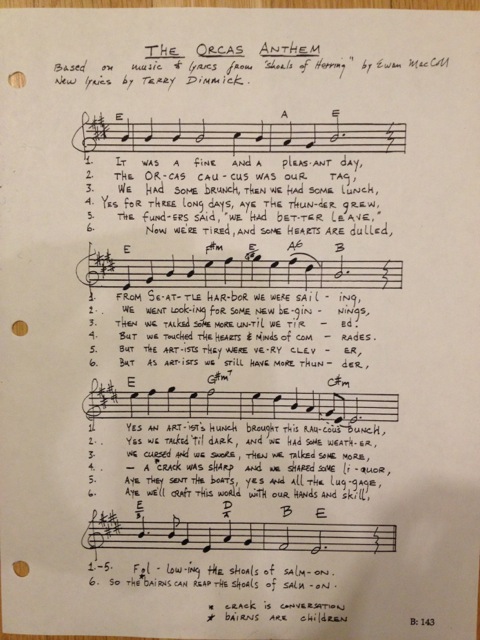 THE ORCAS ANTHEM
Based on music & lyrics from "Shoals of Herring" by Ewan MacColl
New lyrics by TERRY DIMMICK.
E A E
1. IT WAS A FINE AND A PLEAS-ANT DAY,
2. THE OR-CAS CAU-CUS WAS OUR TAG,
3. WE HAD SOME BRUNCH, THEN WE HAD SOME LUNCH,
4. YES FOR THREE LONG DAYS, AYE THE THUN-DER GREW,
5. THE FUND-ERS SAID, "WE HAD BET-TER LEAVE,"
6. NOW WE'RE TIRED, AND SOME HEARTS ARE DULLED,
E F#m E A6 B
1. FROM SE-AT-TLE HAR-BOR WE WERE SAIL - ING,
2. WE WENT LOOK-ING FOR SOME NEW BE-GIN - NINGS,
3. THEN WE TALKED SOME MORE UN-TIL WE TIR - ED.
4. BUT WE TOUCHED THE HEARTS & MINDS OF COM - RADES.
5. BUT THE ART-ISTS THEY WERE VE-RY CLEV - ER,
6. BUT AS ART-ISTS WE STILL HAVE MORE THUN - DER,
E G#m7 C#m
1. YES AN ART-IST'S HUNCH BROUGHT THIS RAU-COUS BUNCH,
2. YES WE TALKED 'TIL DARK, AND WE HAD SOME WEATH-ER,
3. WE CURSED AND WE SWORE, THEN WE TALKED SOME MORE,
4. - A CRACK* WAS SHARP AND WE SHARED SOME LI-QUOR,
5. AYE THEY SENT THE BOATS, YES AND ALL THE LUG-GAGE,
6. AYE WE'LL CRAFT THIS WORLD WITH OUR HANDS AND SKILL,
E D B E
1.-5. FOL - LOW-ING THE SHOALS OF SALM-ON.
6. SO THE *BAIRNS CAN REAP THE SHOALS OF SALM-ON.
* CRACK IS CONVERSATION
* BAIRNS ARE CHILDREN
B: 143